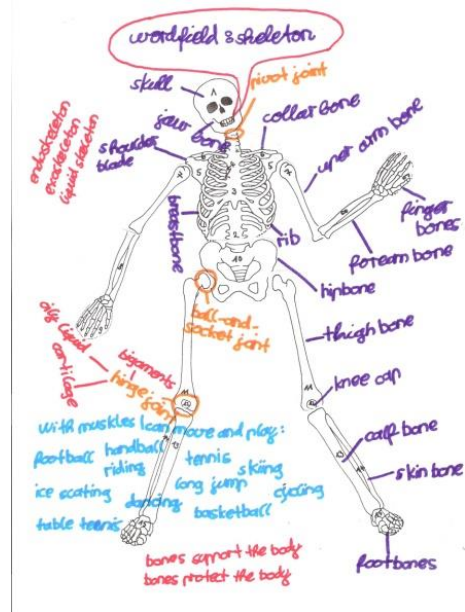 wordfield : skeleton
skull
pivot joint
jaw bone
collar bone
shoulder blade
endoskeleton
exoskeleton
liquid skeleton
upper arm bone
finger bones
forearm bone
breastbone
rib
hipbone
ball-and-
socket joint
thigh bone
oily liquid
cartilage
ligaments
hinge joint
knee cap
With muscles I can move and play:
football handball tennis
riding skiing
ice scating long jump cycling
dancing basketball
table tennis
calf bone
skin bone
footbones
bones support the body
bones protect the body